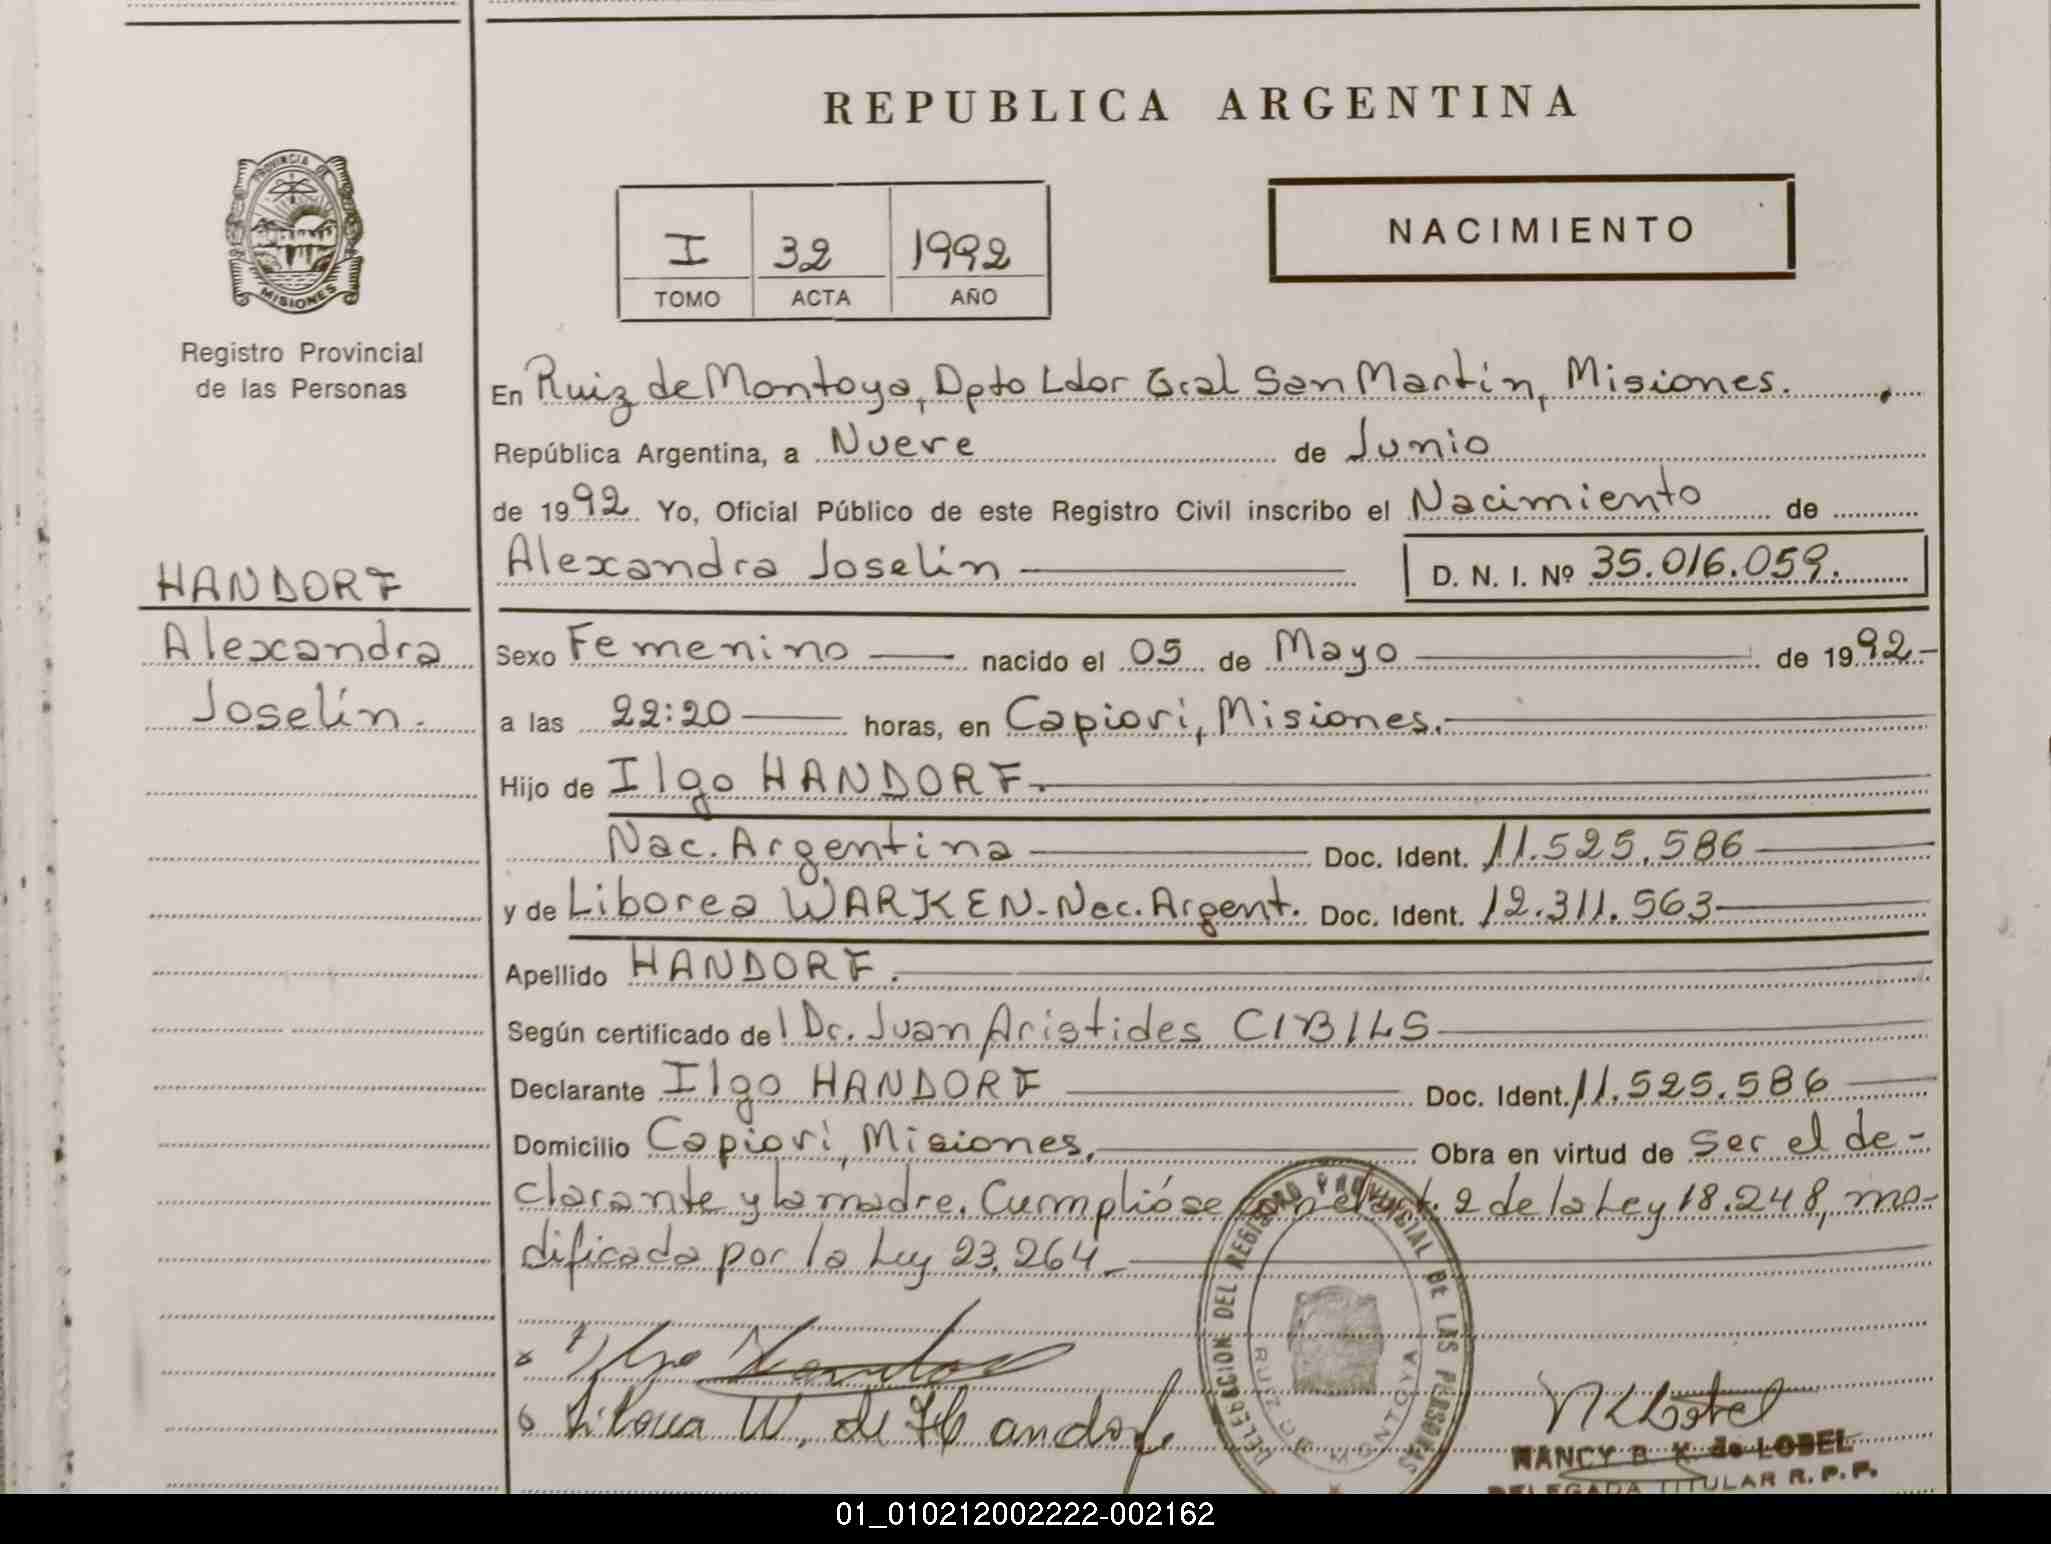 REPUBLICA ARGENTINA
PROVINCIA DE
MISIONES
Registro Provincial
de las Personas
I 32 1992
TOMO ACTA AÑO
NACIMIENTO
En Ruiz de Montoya, Dpto Ldor Gral San Martín, Misiones.
República Argentina, a Nueve de Junio
de 1992 Yo, Oficial Público de este Registro Civil inscribo el Nacimiento de
Alexandra Joselín D. N. I. Nº 35.016.059.
HANDORF
Alexandra
Joselín.
Sexo Femenino nacido el 05 de Mayo de 1992-
a las 22:20 horas, en Capioví, Misiones.
Hijo de Ilgo HANDORF.
Nac. Argentina Doc. Ident. 11.525.586
y de Liborea WARKEN-Nac. Argent. Doc. Ident. 12.311.563
Apellido HANDORF.
Según certificado del Dr. Juan Aristides CIBILS
Declarante Ilgo HANDORF Doc. Ident. 11.525.586
Domicilio Capioví, Misiones. Obra en virtud de ser el de-
clarante y la madre. Cumplióse con el art. 2 de la Ley 18.248, mo-
dificada por la Ley 23.264_
Ilgo
W. de Handorf
DELEGACION DEL REGISTRO PROVINCIAL DE LAS PERSONAS
RUIZ DE MONTOYA
NANCY B. K. de LOBEL
DELEGADA TITULAR R. P. P.
01_010212002222-002162